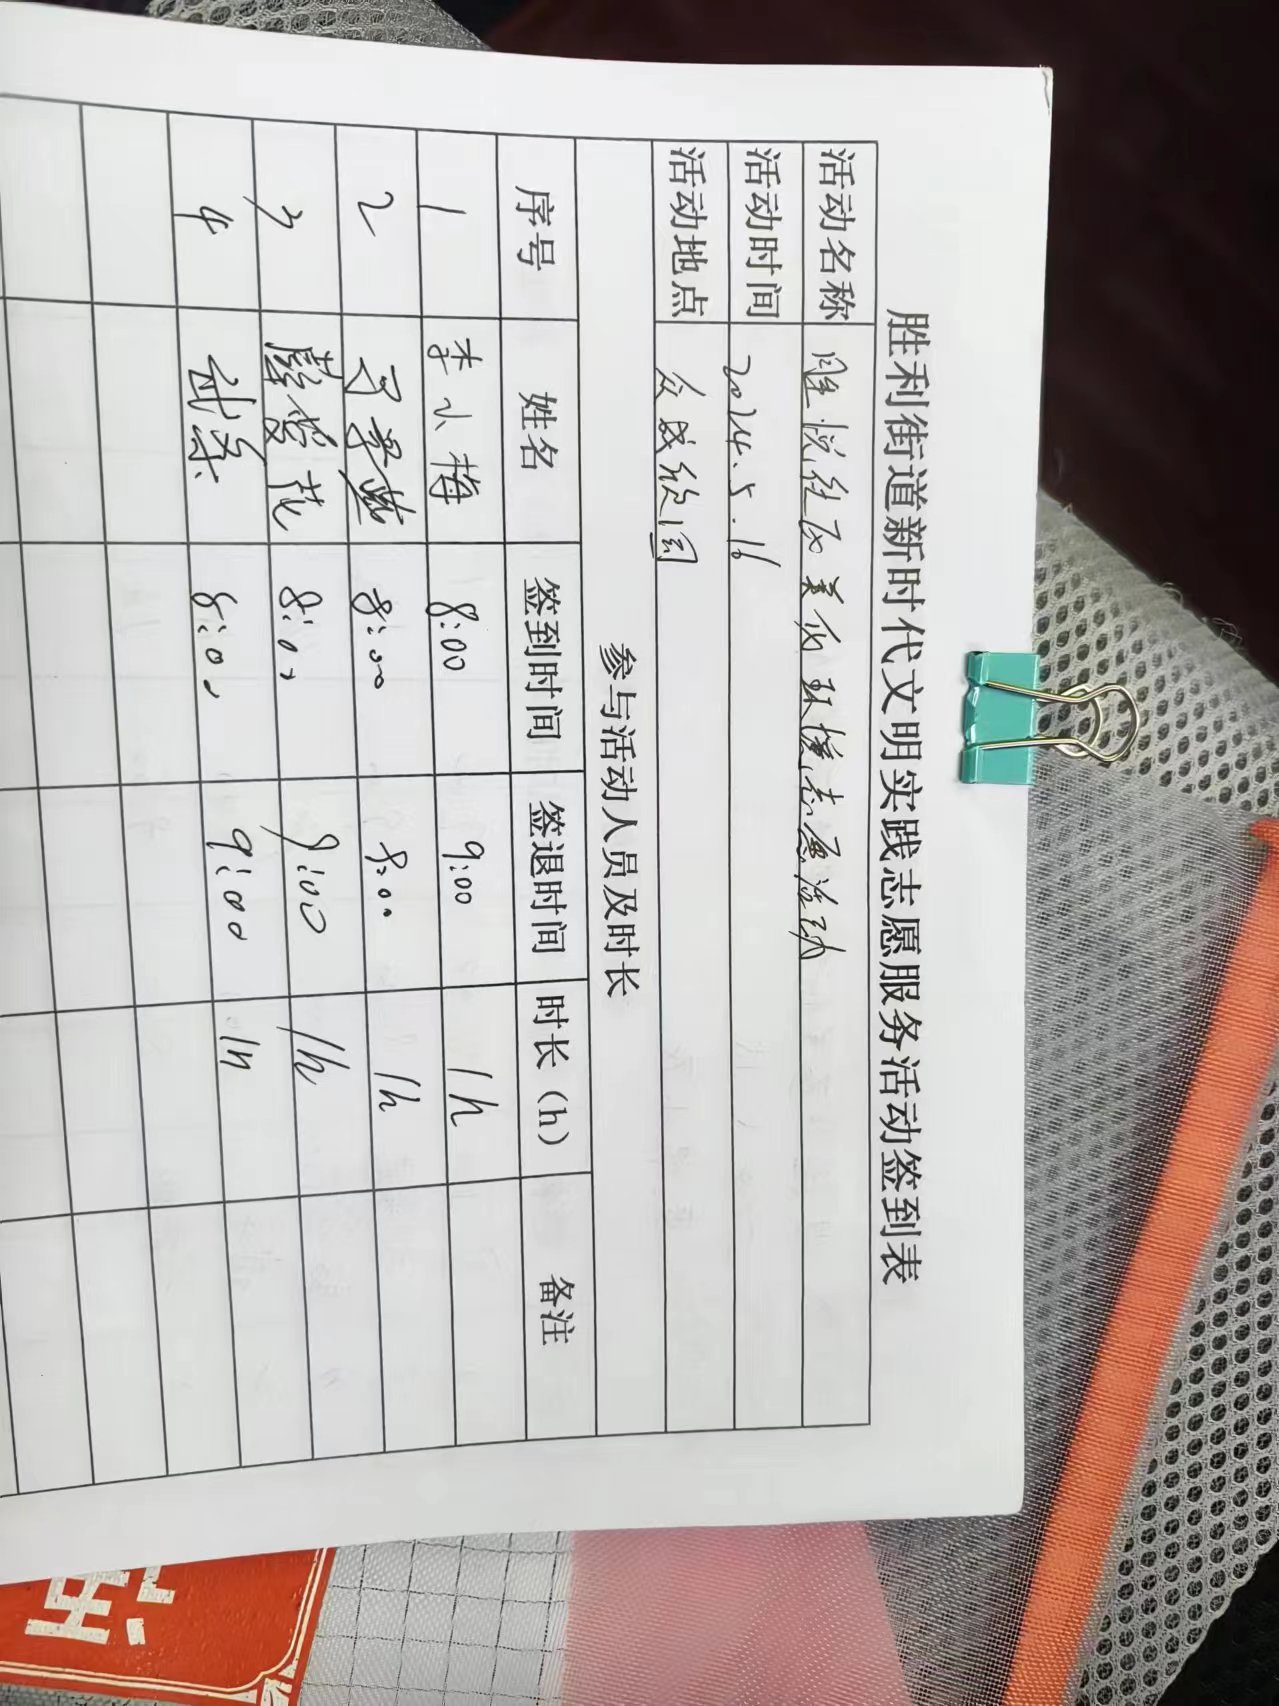 胜利街道新时代文明实践志愿服务活动签到表
活动名称 胜悦社区美为环境志愿活动
活动时间 2024.5.16
活动地点 众成欣园
参与活动人员及时长
序号 姓名 签到时间 签退时间 时长(h) 备注
1 李小梅 8:00 9:00 1h
2 8:00 9:00 1h
3 8:00 9:00 1h
4 8:00 9:00 1h